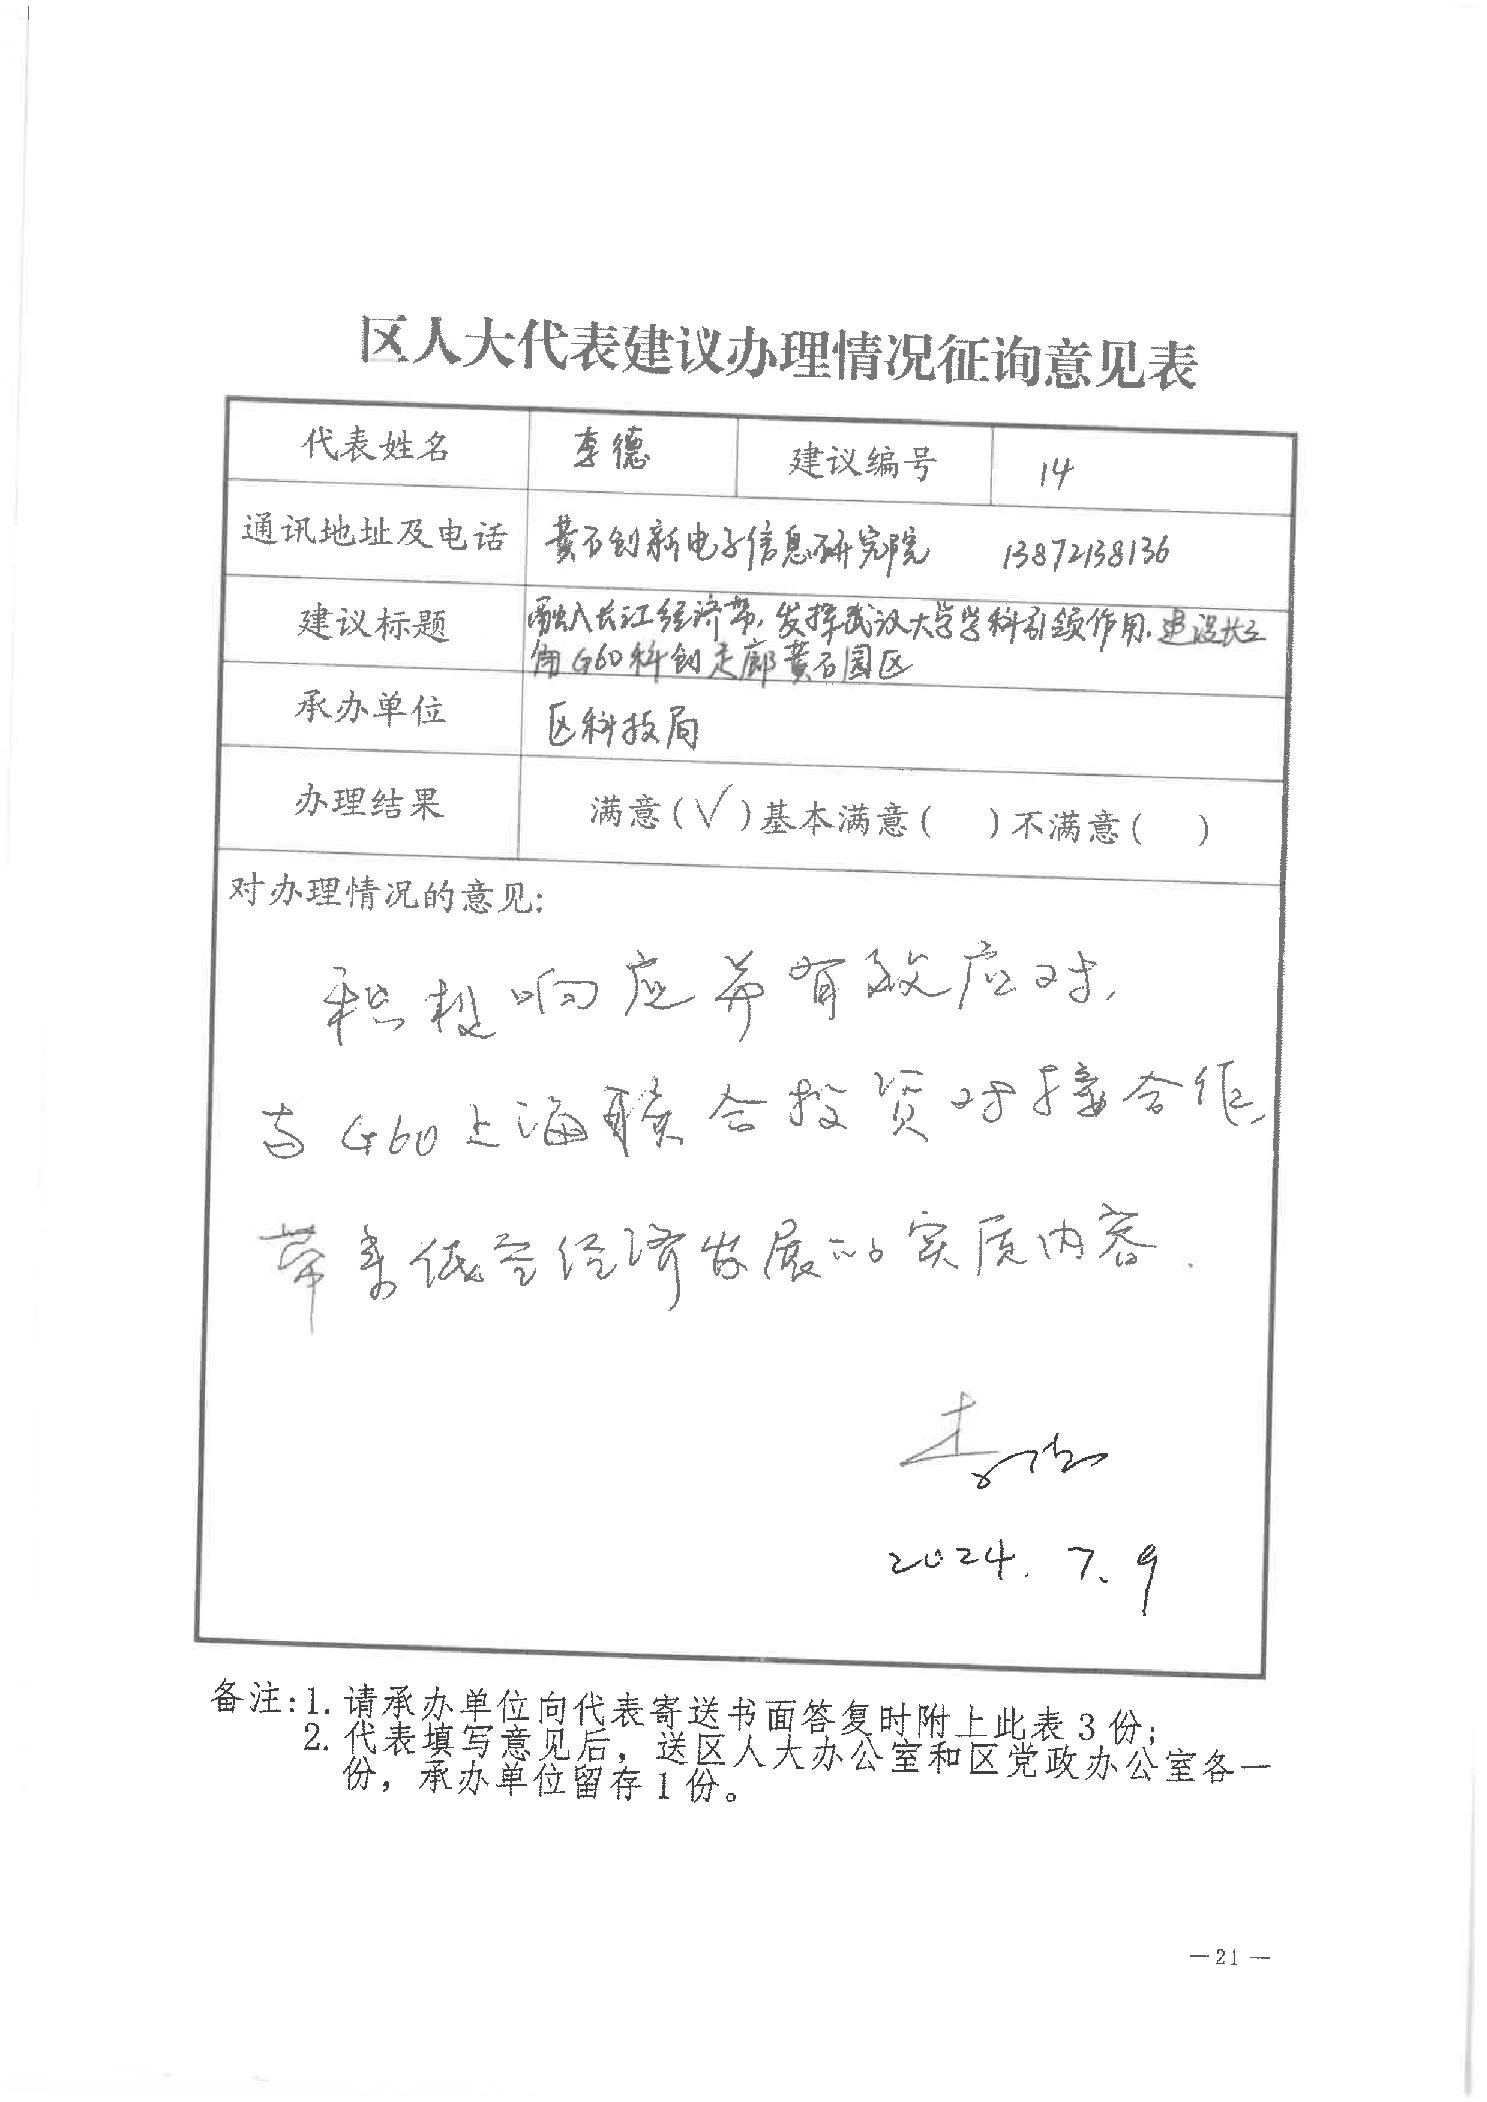 区人大代表建议办理情况征询意见表
代表姓名 李德 建议编号 14
通讯地址及电话 黄石创新电子信息研究院 13872138136
建议标题 融入长江经济带,发挥武汉大学学科引领作用,建设长三
角G60科创走廊黄石园区
承办单位 区科技局
办理结果 满意(√)基本满意( )不满意( )
对办理情况的意见:
积极响应并有效应对,
与G60上海联合投资对接合作,
带来低空经济发展的实质内容.
李德
2024.7.9
备注:1.请承办单位向代表寄送书面答复时附上此表3份;
2.代表填写意见后,送区人大办公室和区党政办公室各一
份,承办单位留存1份。
—21—